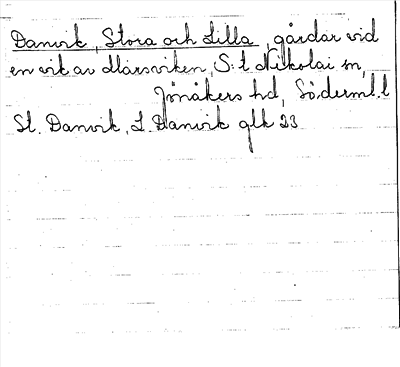 Danvik, Stora och Lilla, gårdar vid
en vik av Marsviken, S:t Nikolai sn,
Jönåkers hd, Söderml. l
St. Danvik, L. Danvik glk 23